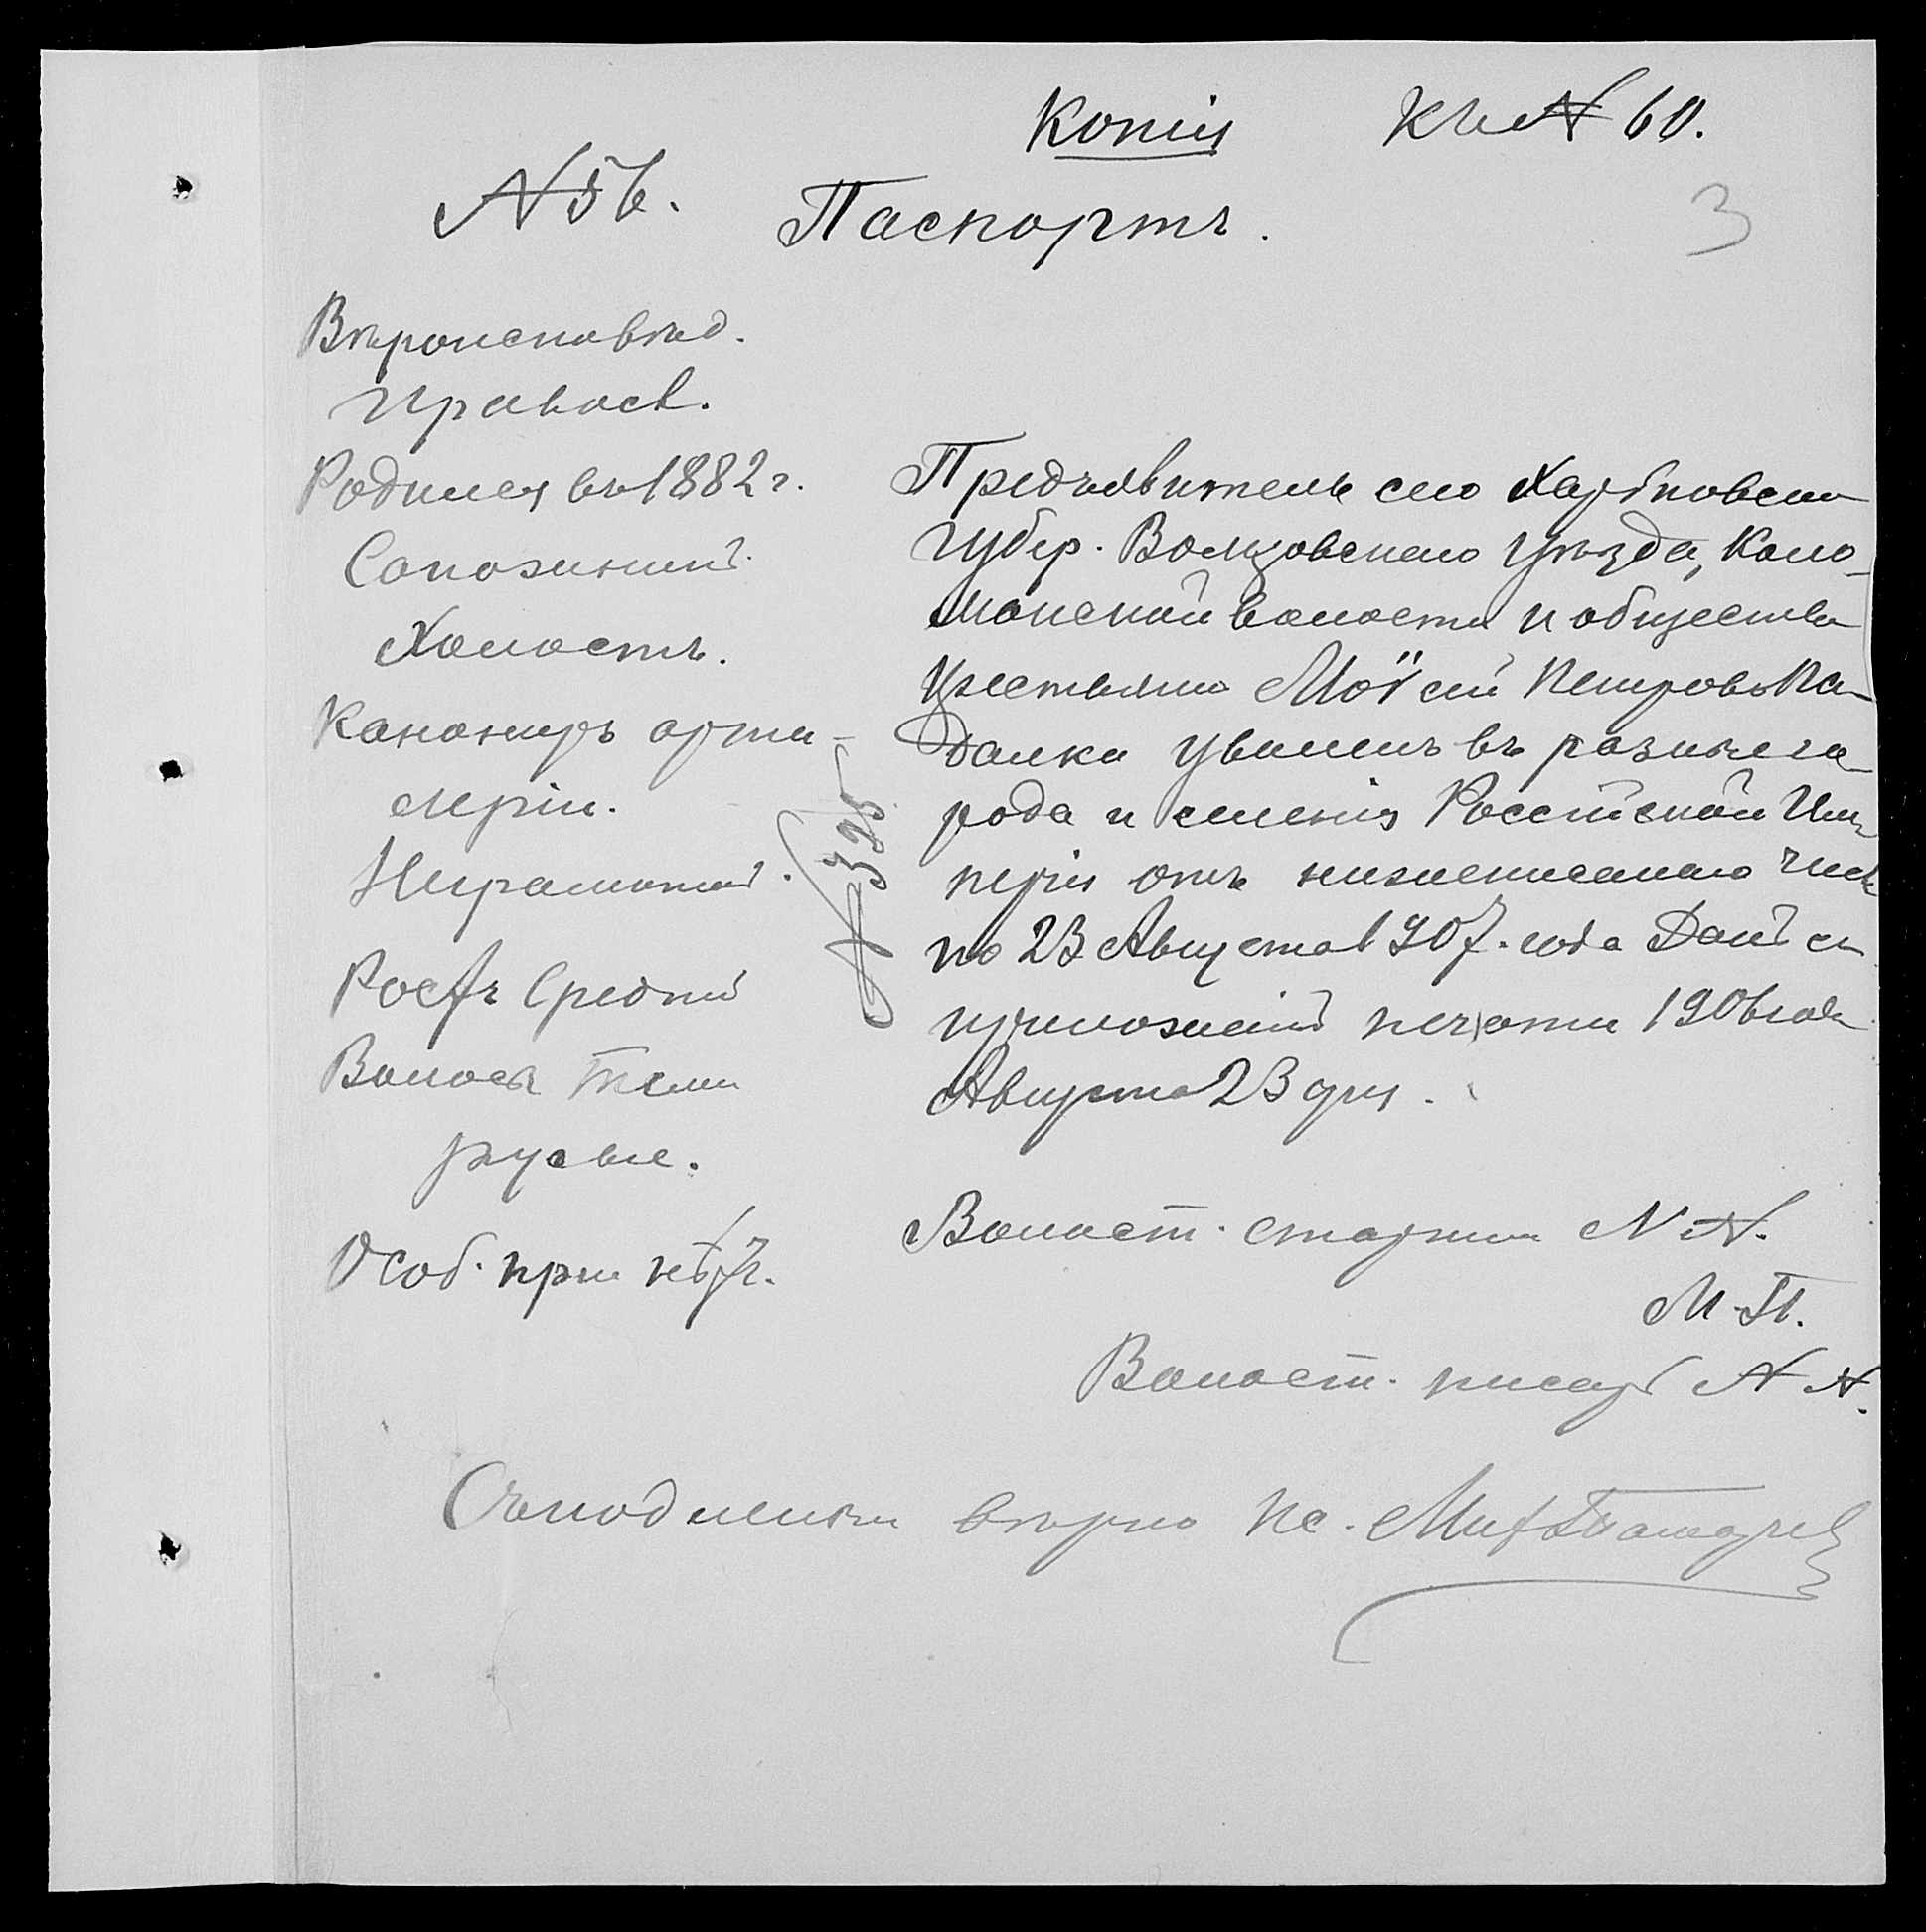 Копія
Къ № 60.
3
№ 56.
Паспортъ.
Вѣроисповѣд.
Правосл.
Родился въ 1882 г.
Холостъ.
Канониръ арти-
леріи.
Неграмотный.
Ростъ Средній
Волосы темно
русые.
Особ. прим нѣтъ.
№ 325
Предъявитель сего Харьковской
Губер. Волчовскаго Уѣзда, Коло-
волости и общества
Крестьянинъ Мойсей Петровъ Па-
далка уволенъ въ разные го-
рода и селенія Россійской Им-
періи отъ нижеписаннаго числ
по 23 Августа 1907 года Данъ съ
приложеніем печати 1906 года
Августа 23 дня.
Волост. старшин N N.
М. П.
Волост. писарь N N.
Съ подленнымъ вѣрно